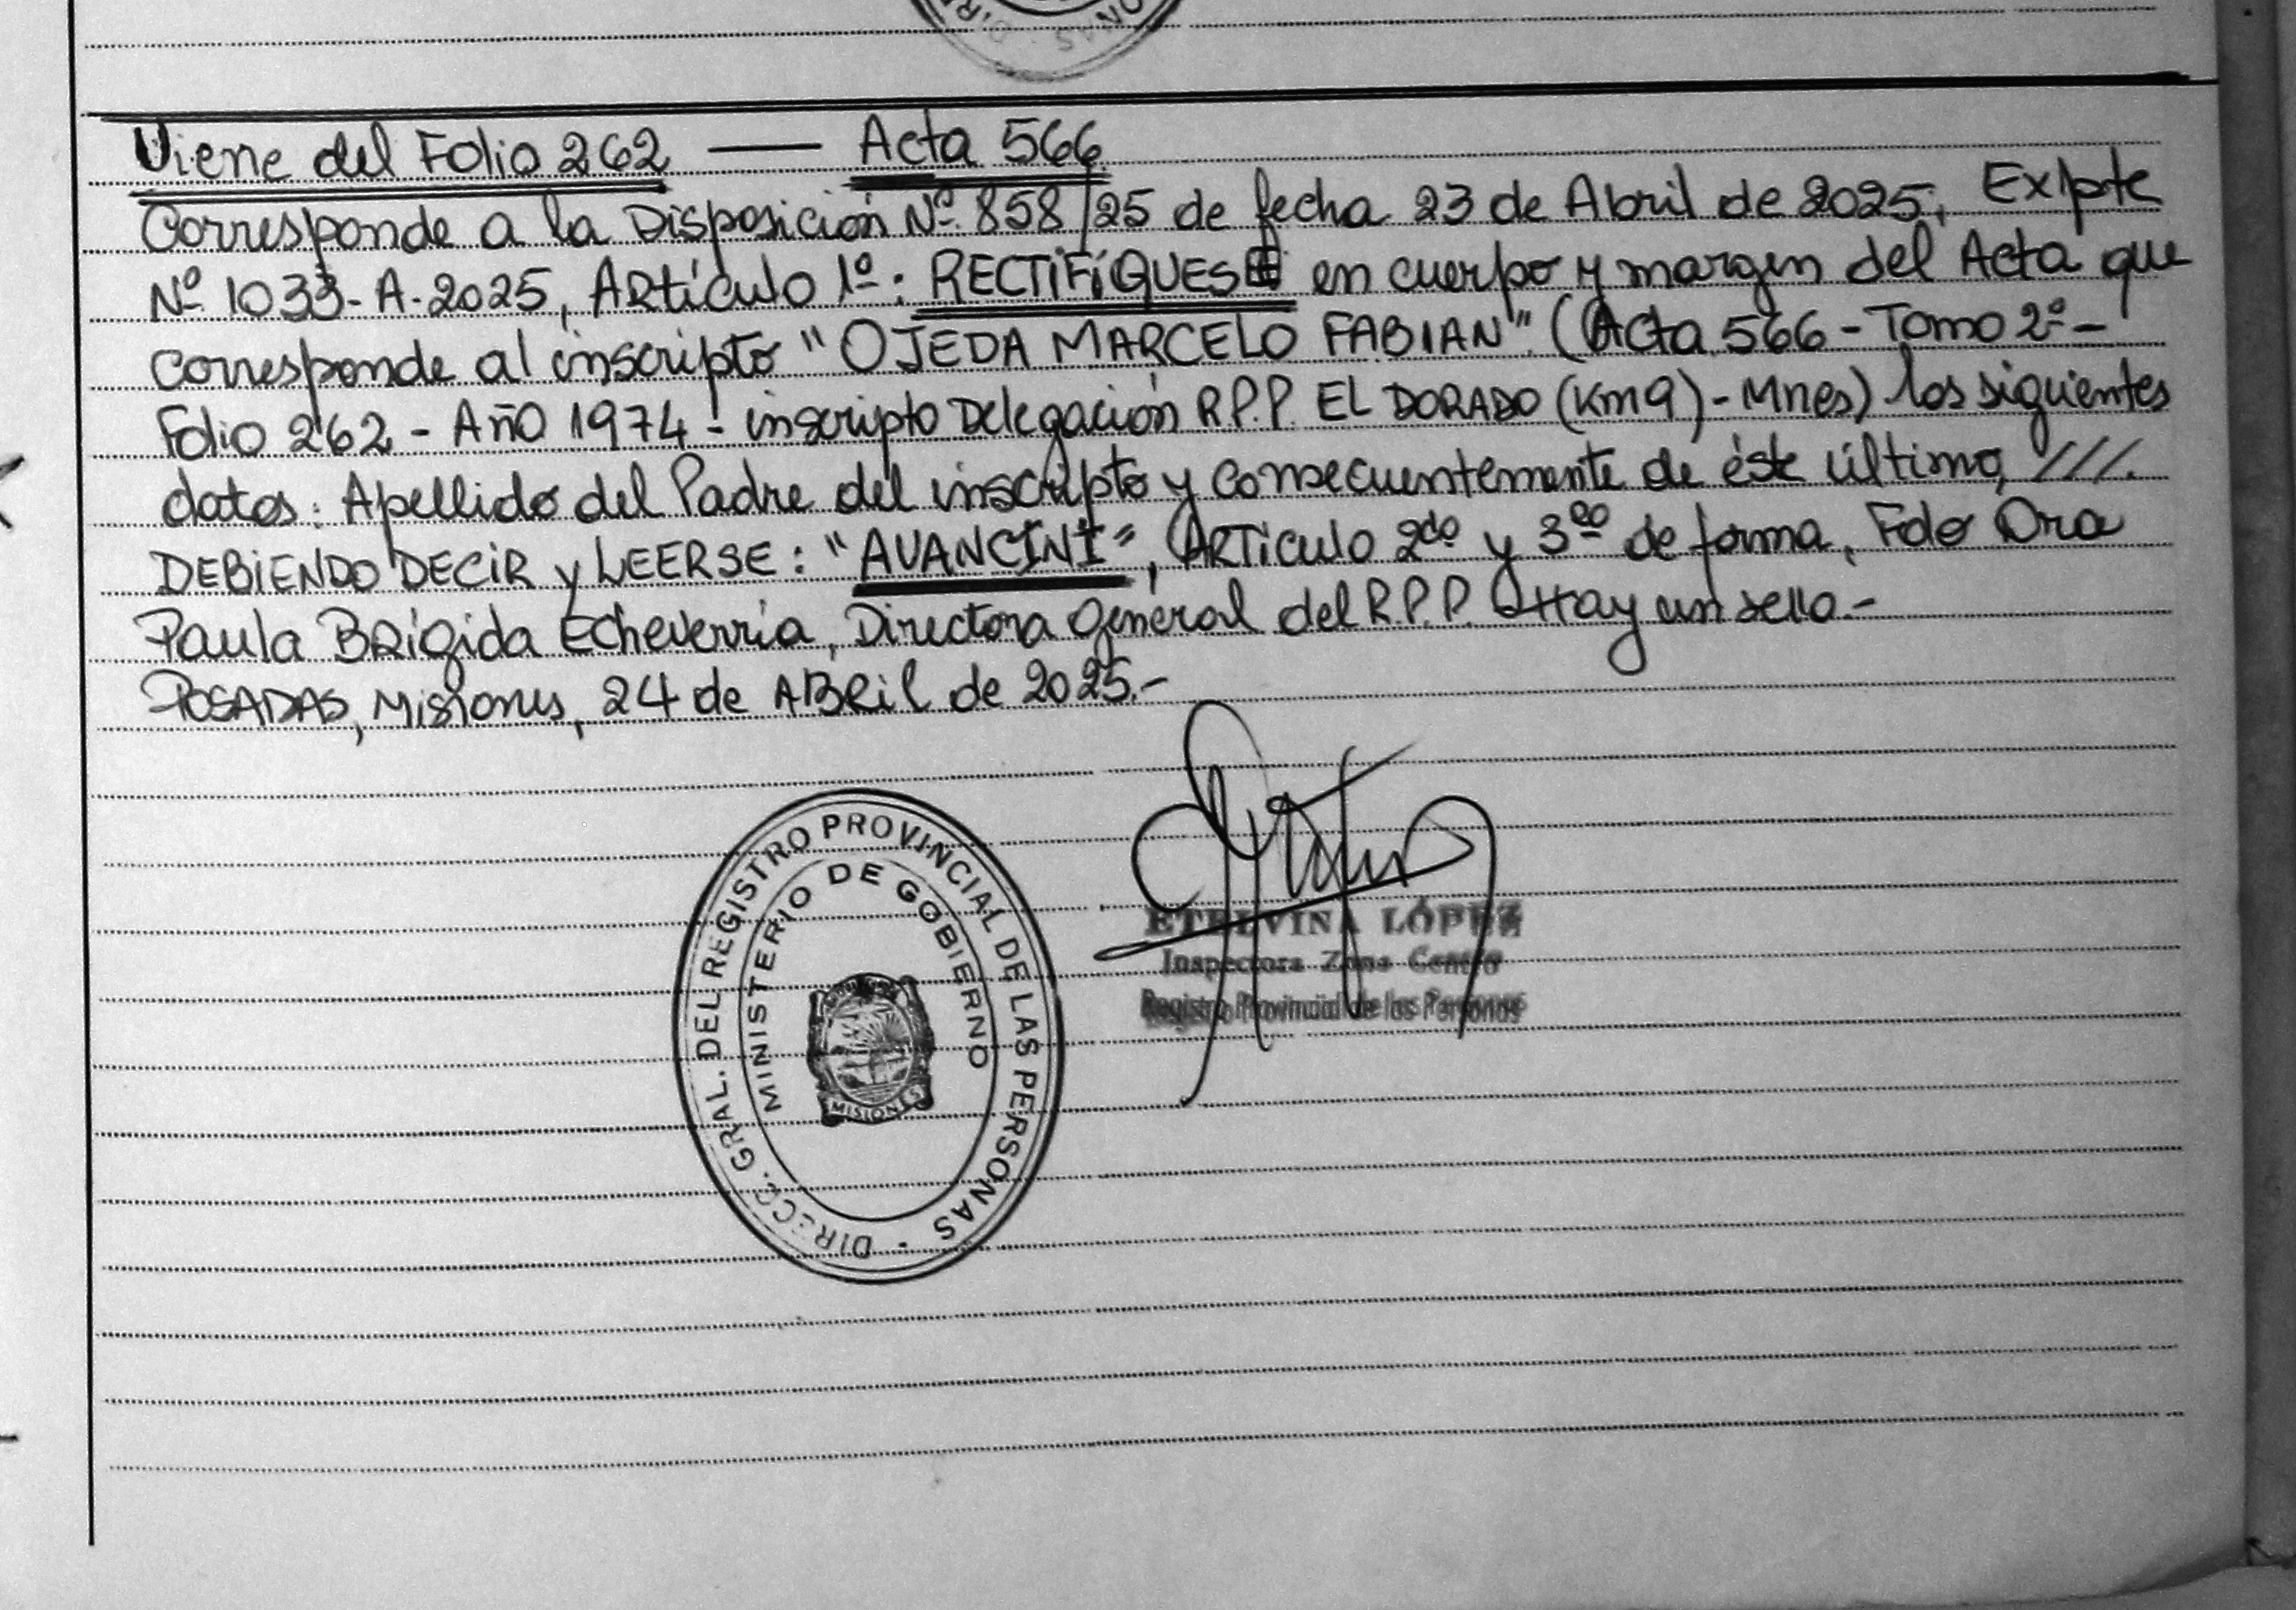 Viene del Folio 262 — Acta 566
Corresponde a la Disposición Nº 858/25 de fecha 23 de Abril de 2025; Exípte
Nº 1033-A-2025, ARtículo 1º: RECTIFíQUESE en cuerpo y margen del Acta que
corresponde al inscripto "OJEDA MARCELO FABIAN" (Acta 566 - Tomo 2º -
Folio 262 - Año 1974 - inscripto Delegación R.P.P. EL DORADO (Km9) - Mnes) los siguientes
datos: Apellido del Padre del inscripto y consecuentemente de éste último, ///.
DEBIENDO DECIR y LEERSE: "AVANCINI", ARTículo 2do y 3ero de forma, Fdo Dra
Paula BRígida Echeverría, Directora General del R.P.P. Hay un sello.-
POSADAS, Misiones, 24 de ABRil de 2025.-
DIRECC. GRAL. DEL REGISTRO PROVINCIAL DE LAS PERSONAS
MINISTERIO DE GOBIERNO
MISIONES
ETELVINA LÓPEZ
Inspectora Zona Centro
Registro Provincial de las Personas